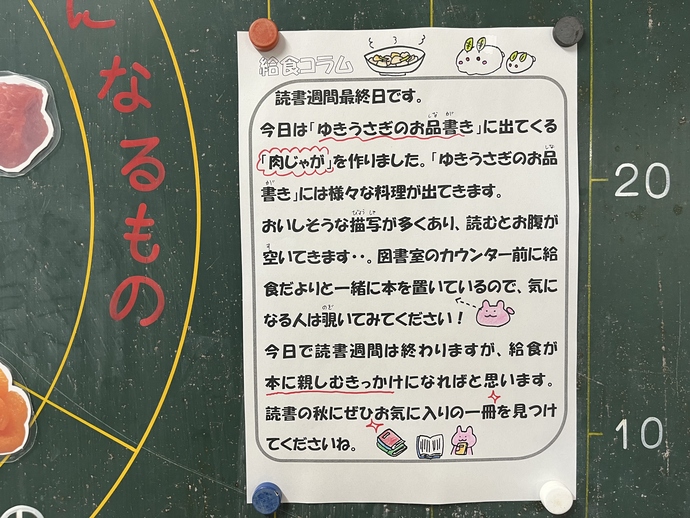 ん
なるもの
給食コラム
読書週間最終日です。
今日は「ゆきうさぎのお品書き」に出てくる
「肉じゃが」を作りました。「ゆきうさぎのお品
書き」には様々な料理が出てきます。
おいしそうな描写が多くあり、読むとお腹が
空いてきます・・。図書室のカウンター前に給
食だよりと一緒に本を置いているので、気に
なる人は覗いてみてください！
今日で読書週間は終わりますが、給食が
本に親しむきっかけになればと思います。
読書の秋にぜひお気に入りの一冊を見つけ
てくださいね。
20
10